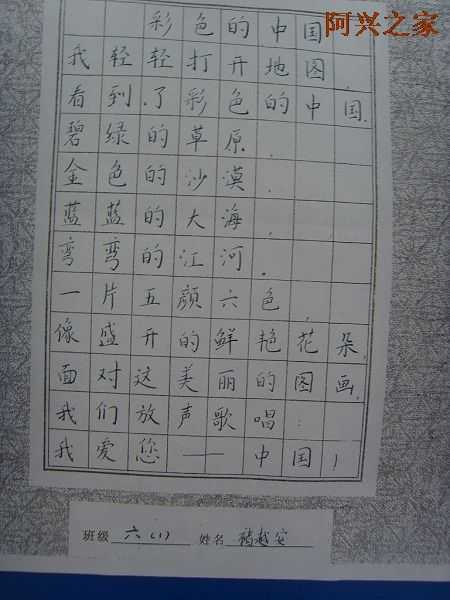 阿兴之家
彩色的中国
我轻轻打开地图,
看到了彩色的中国,
碧绿的草原,
金色的沙漠,
蓝蓝的大海,
弯弯的江河。
一片五颜六色,
像盛开的鲜艳花朵,
面对这美丽的图画,
我们放声歌唱:
我爱您——中国!
班级 六(1) 姓名 越